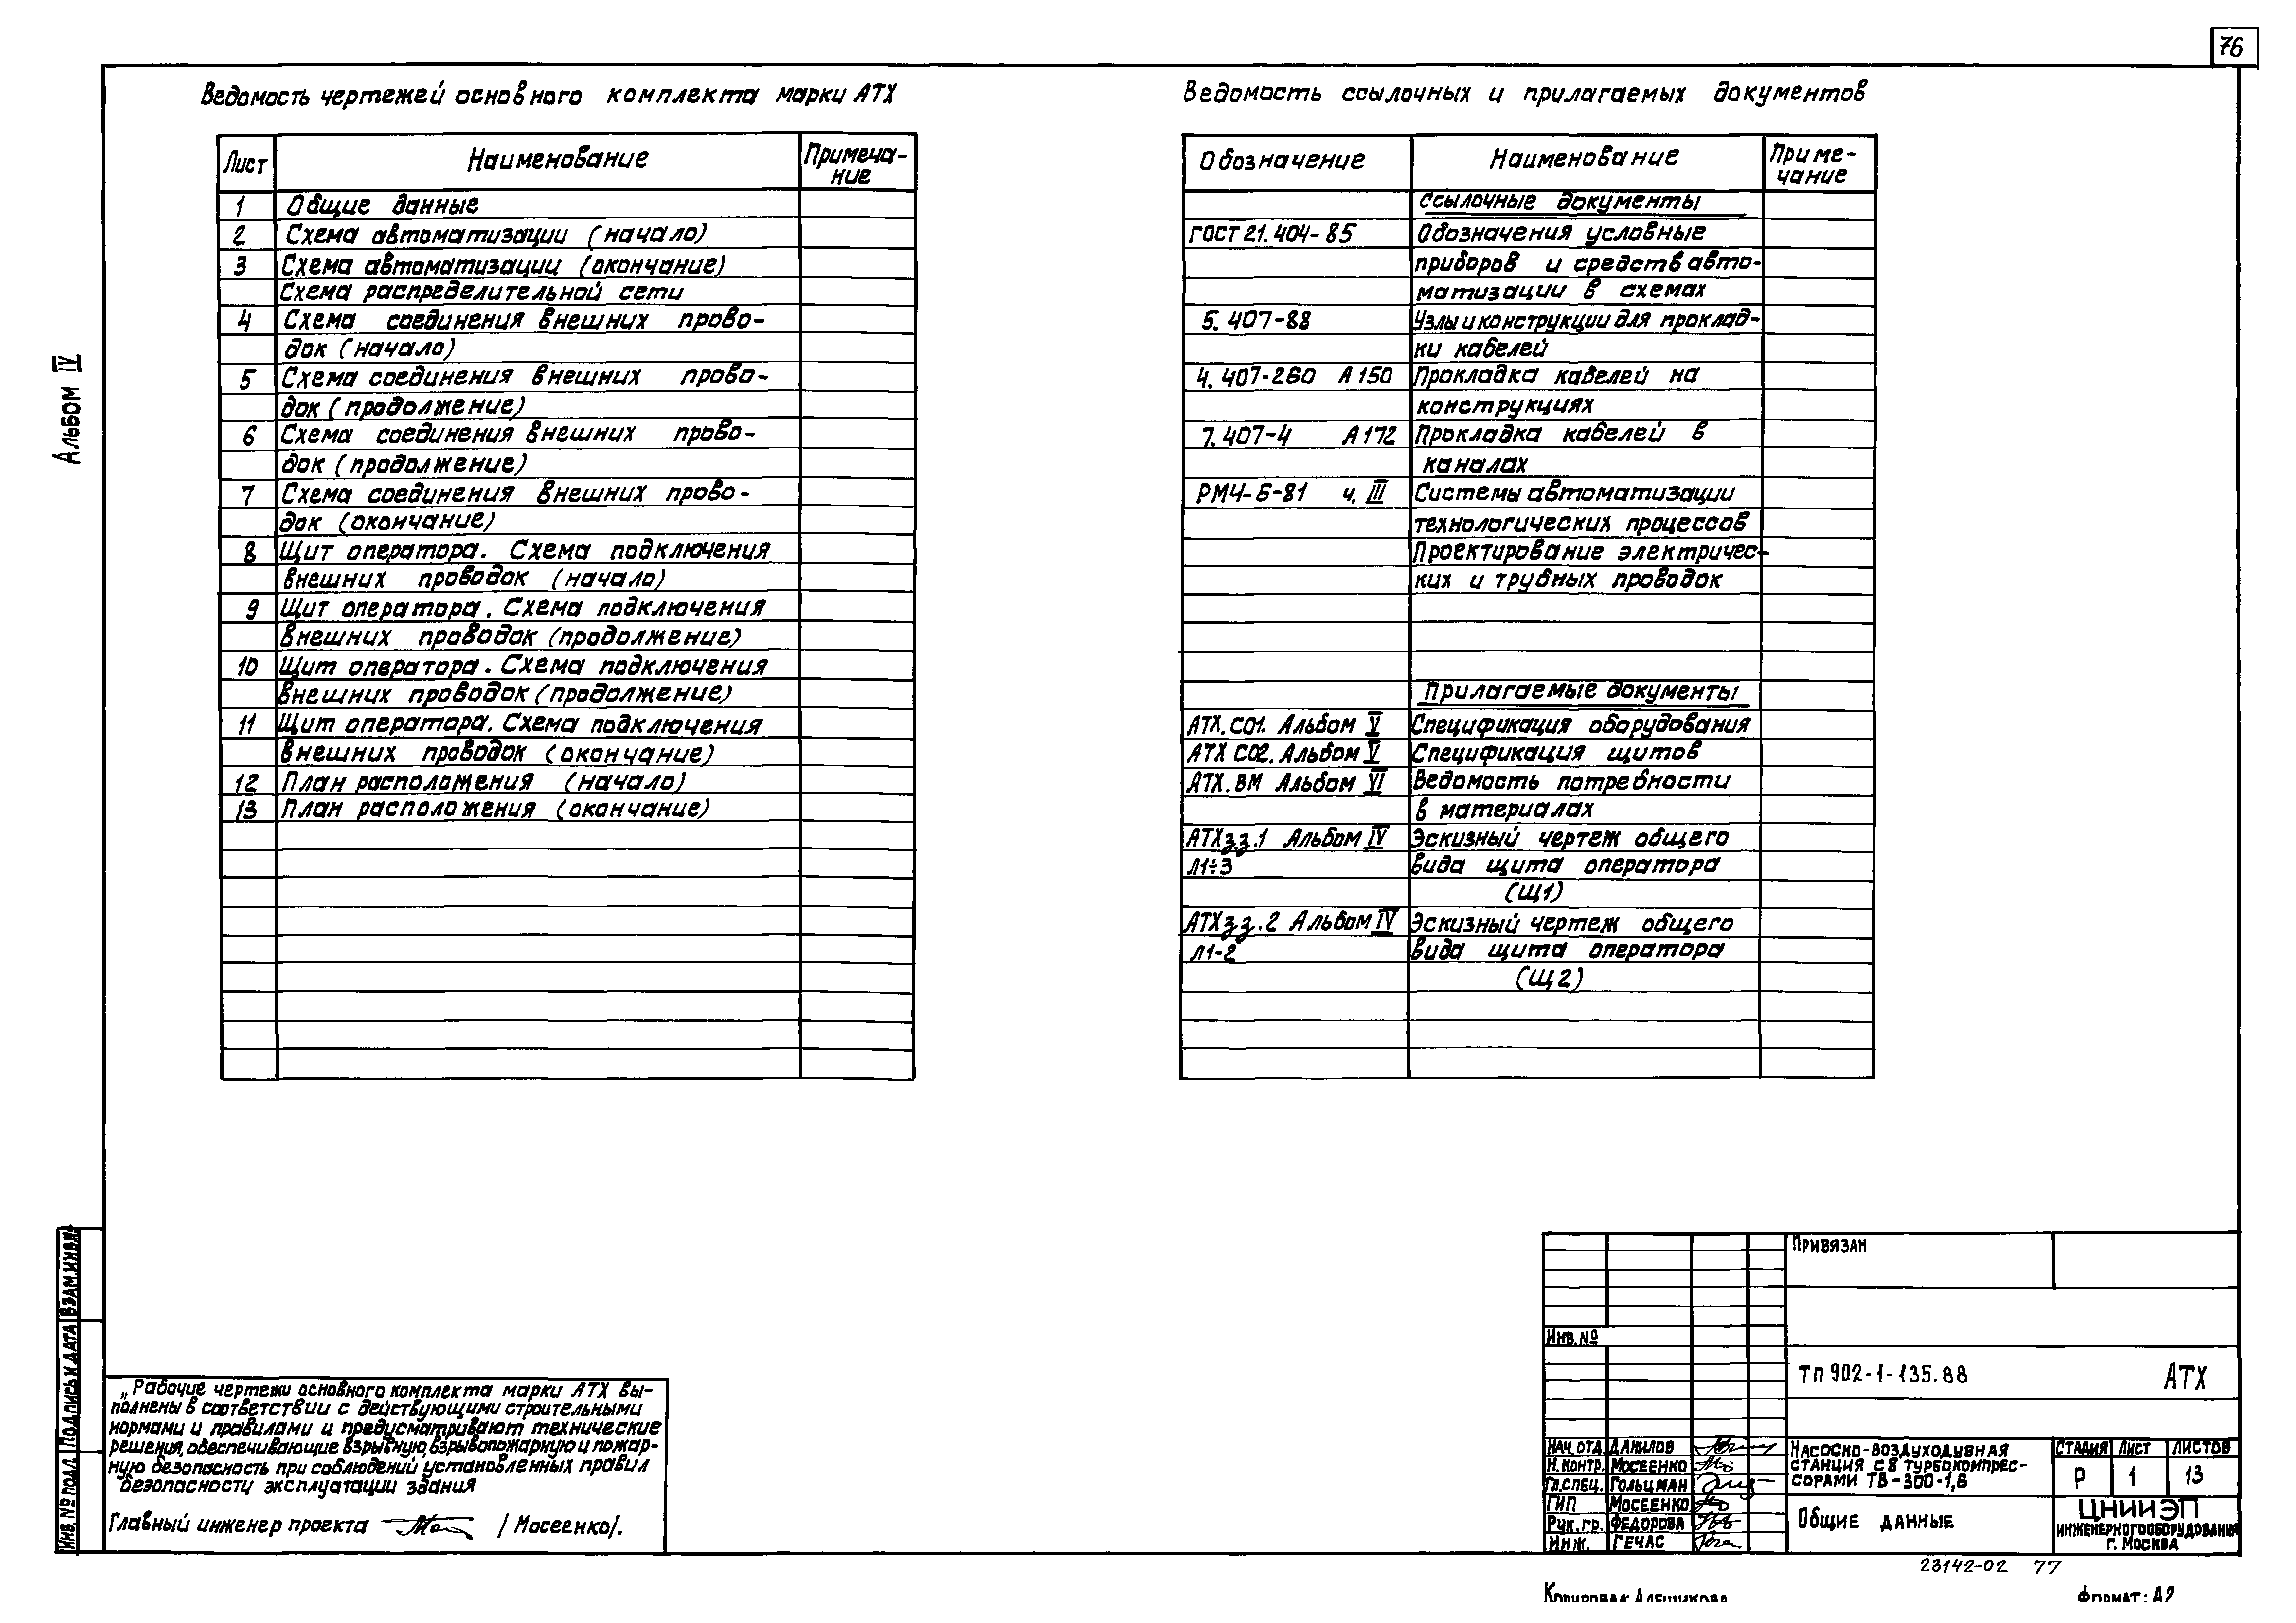 76
Альбом IV
Ведомость чертежей основного комплекта марки АТХ
Лист Наименование Примеча-
ние
1 Общие данные
2 Схема автоматизации (начало)
3 Схема автоматизации (окончание)
Схема распределительной сети
4 Схема соединения внешних прово-
док (начало)
5 Схема соединения внешних прово-
док (продолжение)
6 Схема соединения внешних прово-
док (продолжение)
7 Схема соединения внешних прово-
док (окончание)
8 Щит оператора. Схема подключения
внешних проводок (начало)
9 Щит оператора. Схема подключения
внешних проводок (продолжение)
10 Щит оператора. Схема подключения
внешних проводок (продолжение)
11 Щит оператора. Схема подключения
внешних проводок (окончание)
12 План расположения (начало)
13 План расположения (окончание)
Ведомость ссылочных и прилагаемых документов
Обозначение Наименование Приме-
чание
Ссылочные документы
ГОСТ 21.404-85 Обозначения условные
приборов и средств авто-
матизации в схемах
5.407-88 Узлы и конструкции для проклад-
ки кабелей
4.407-260 А150 Прокладка кабелей на
конструкциях
7.407-4 А172 Прокладка кабелей в
каналах
РМ4-6-81 ч. III Системы автоматизации
технологических процессов
Проектирование электричес-
ких и трубных проводок
Прилагаемые документы
АТХ.СО1. Альбом V Спецификация оборудования
АТХ СО2. Альбом V Спецификация щитов
АТХ.ВМ Альбом VI Ведомость потребности
в материалах
АТХз.з.1 Альбом IV Эскизный чертеж общего
Л1÷3 вида щита оператора
(Щ1)
АТХз.з.2 Альбом IV Эскизный чертеж общего
Л1-2 вида щита оператора
(Щ2)
ИНВ.№ ПОДЛ ПОДПИСЬ И ДАТА ВЗАМ.ИНВ.№
„Рабочие чертежи основного комплекта марки АТХ вы-
полнены в соответствии с действующими строительными
нормами и правилами и предусматривают технические
решения, обеспечивающие взрывную, взрывопожарную и пожар-
ную безопасность при соблюдений установленных правил
безопасности эксплуатации здания
Главный инженер проекта /Мосеенко/.
Привязан
Инв.№
ТП 902-1-135.88 АТХ
НАЧ.ОТД. ДАНИЛОВ
Н.КОНТР. МОСЕЕНКО
ГЛ.СПЕЦ. ГОЛЬЦМАН
ГИП МОСЕЕНКО
Рук.гр. ФЕДОРОВА
ИНЖ. ГЕЧАС
НАСОСНО-ВОЗДУХОДУВНАЯ
СТАНЦИЯ С 8 ТУРБОКОМПРЕС-
СОРАМИ ТВ-300-1,6
СТАДИЯ ЛИСТ ЛИСТОВ
Р 1 13
Общие данные
ЦНИИЭП
ИНЖЕНЕРНОГО ОБОРУДОВАНИЯ
г. Москва
23142-02 77
Копировал: Алешикова
Формат: А2